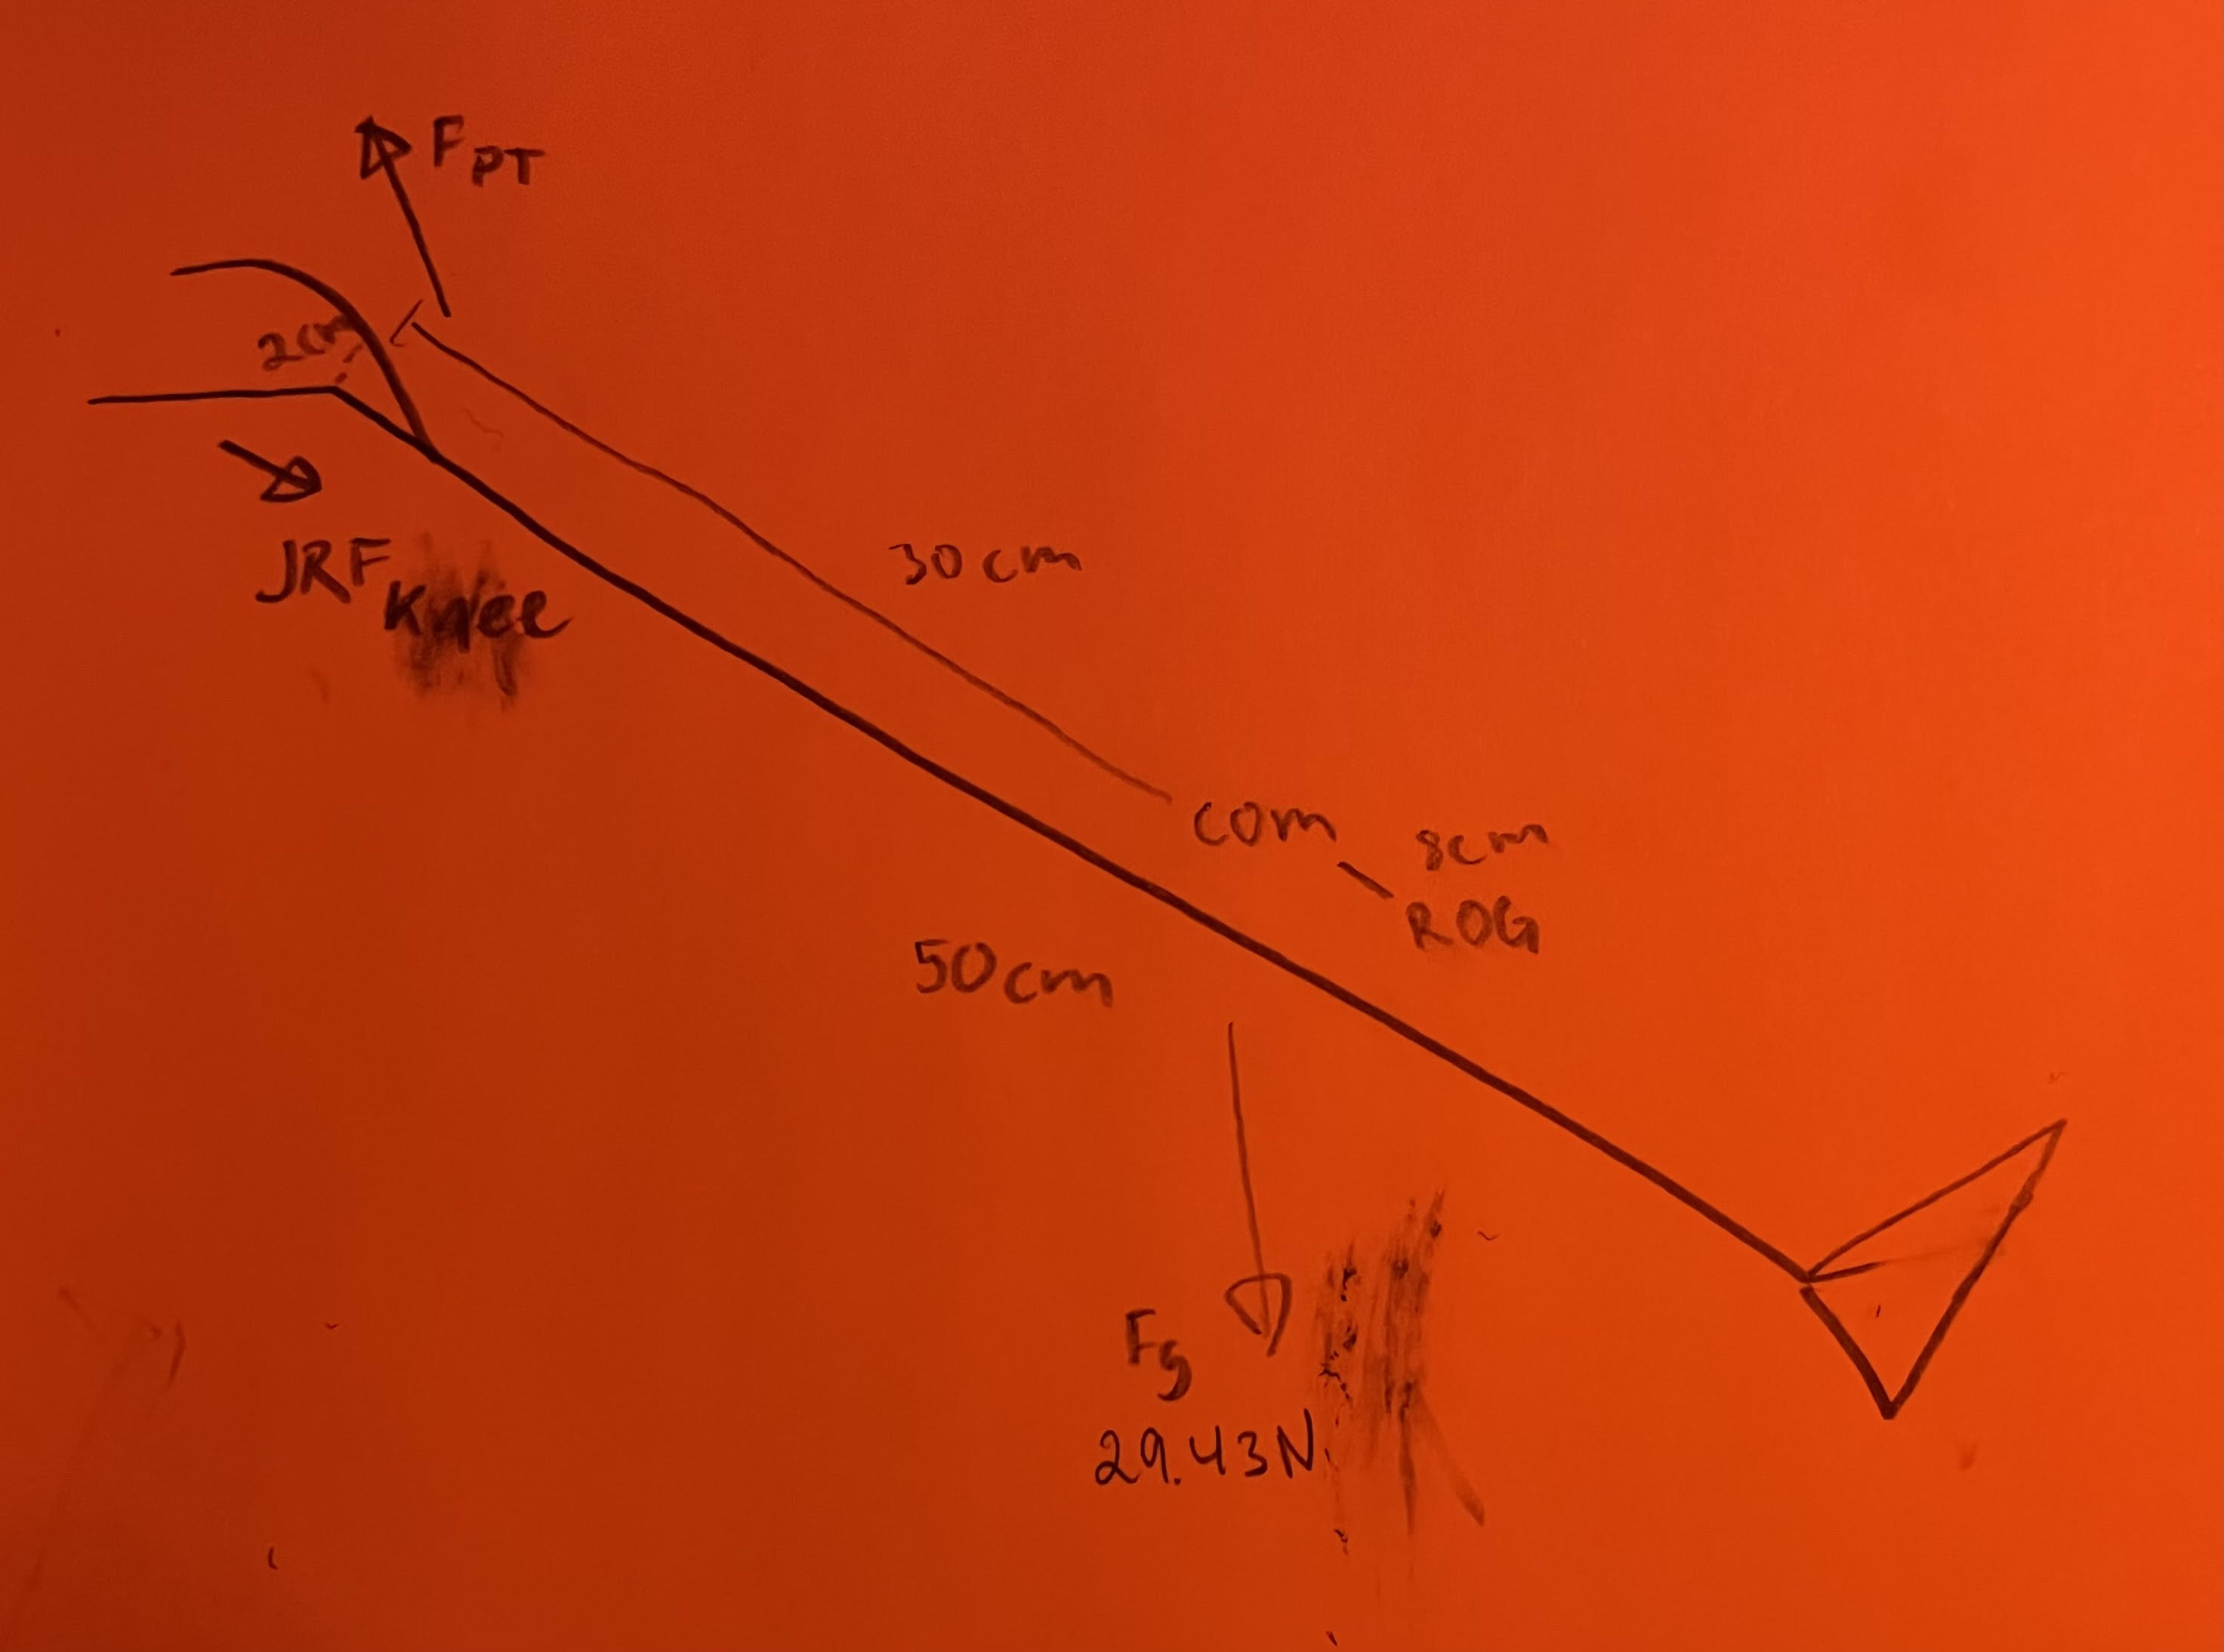 FPT
2cm
JRF
Knee
30cm
COM
8cm
ROG
50cm
Fg
29.43N